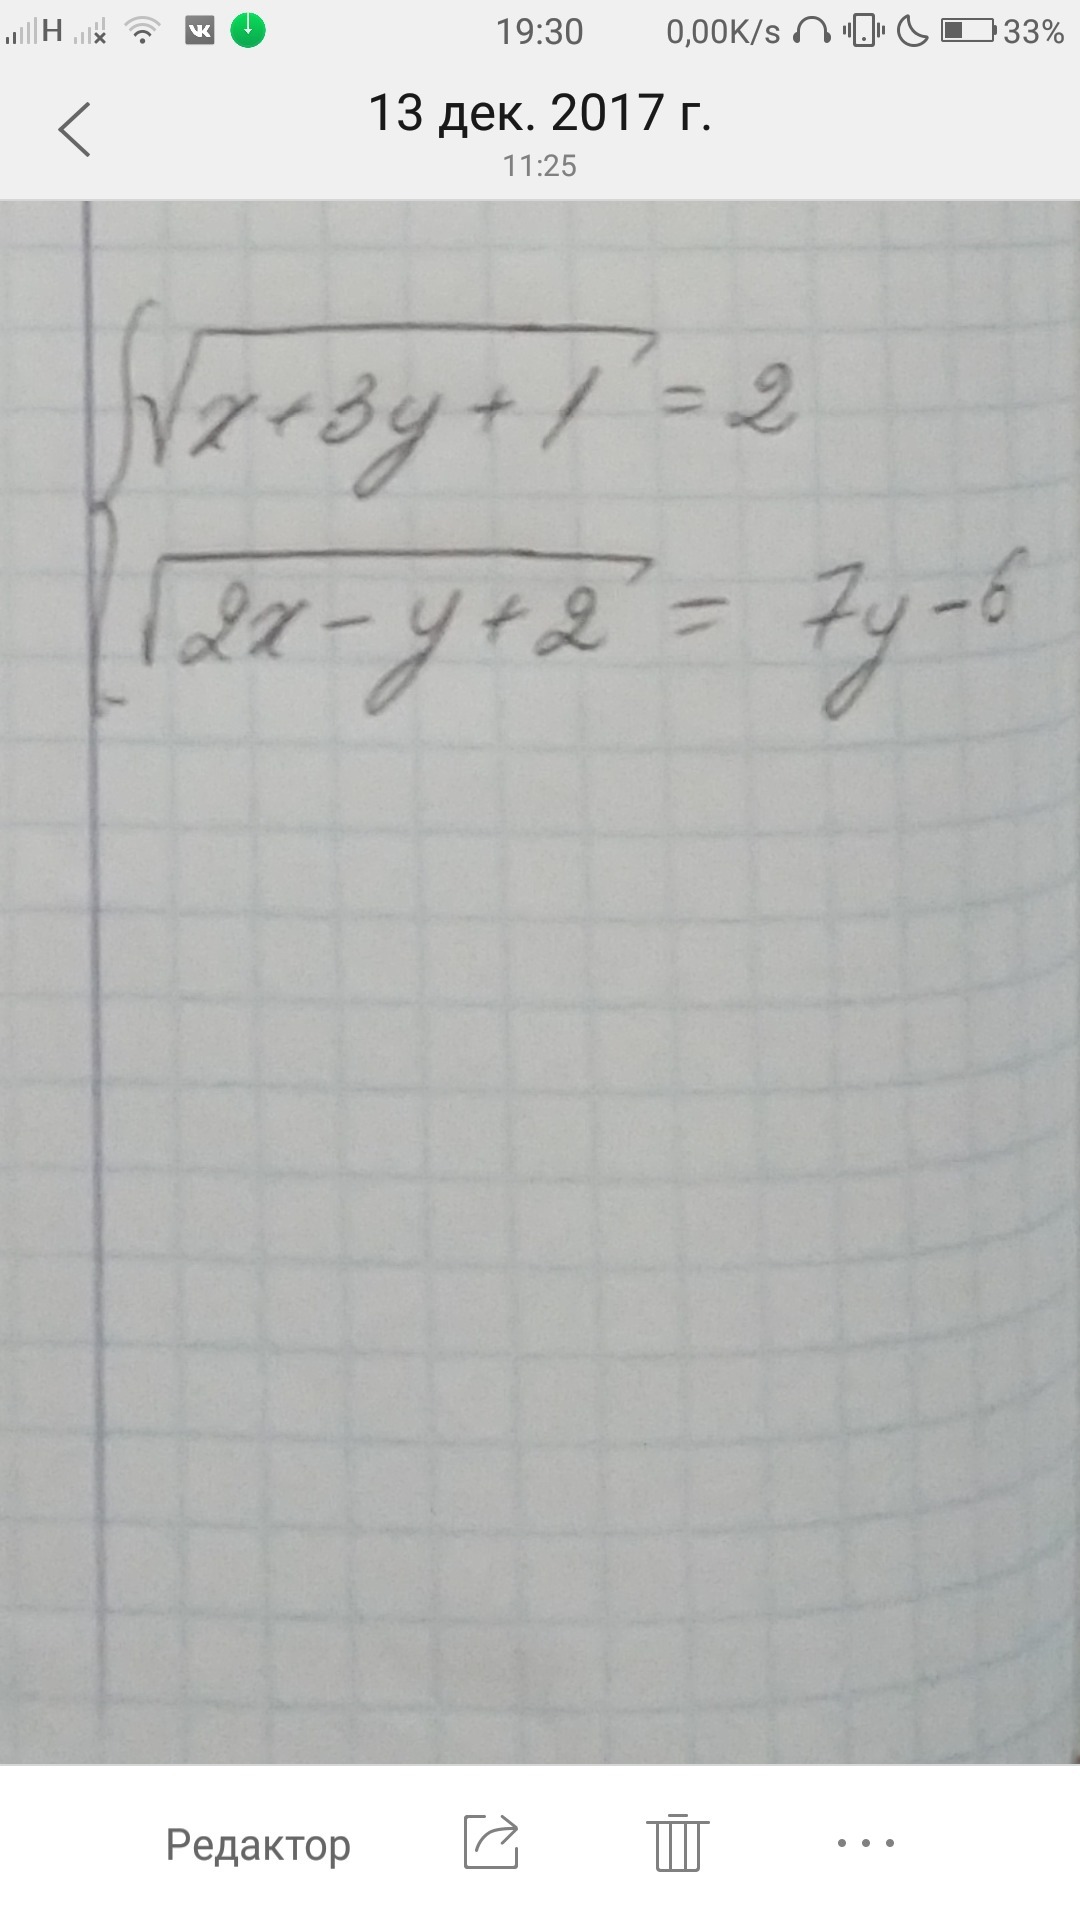 H VK 19:30 0,00K/s 33%
13 дек. 2017 г.
11:25
√(x+3y+1) = 2
√(2x-y+2) = 7y-6
Редактор